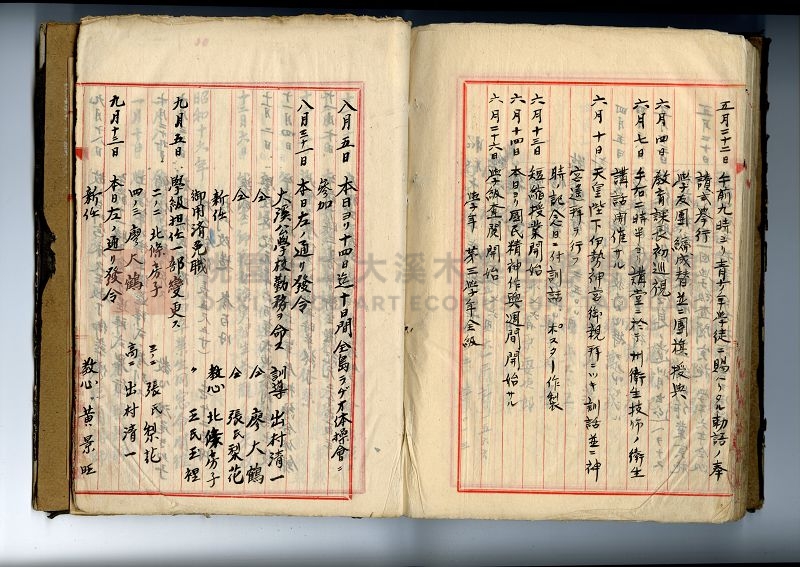 五月二十二日 午前九時ヨリ青少年学徒ニ賜ハリタル勅語ノ奉
讀式挙行
学友團編成替並ニ團旗授與
六月四日 教育課長初巡視
六月七日 午后二時半ヨリ講堂ニ於テ州衛生技師ノ衛生
講話開催サル
六月十日 天皇陛下伊勢神宮御親拜ニツキ訓話並ニ神
宮遥拜ヲ行フ
時ノ記念日ニ付訓話、ポスター作製
六月十三日 短縮授業開始
六月十四日 本日ヨリ國民精神作興週間開始サル
六月二十六日 学級査閲開始
学年 第三学年全級
八月五日 本日ヨリ十四日迄十日間全島ラヂオ体操會ニ
参加
八月三十一日 本日左ノ通リ發令
大溪公學校勤務ヲ命ズ 訓導 出村清一
仝 仝 廖大鶴
仝 仝 張氏梨花
新任 教心 北條房子
御用済免職 〃 王氏玉裡
九月五日 學級担任一部變更ス
二ノ二 北條房子 三ノ二 張氏梨花
四ノ三 廖大鶴 高二 出村清一
九月十三日 本日左ノ通リ發令
新任 教心 黄景旺